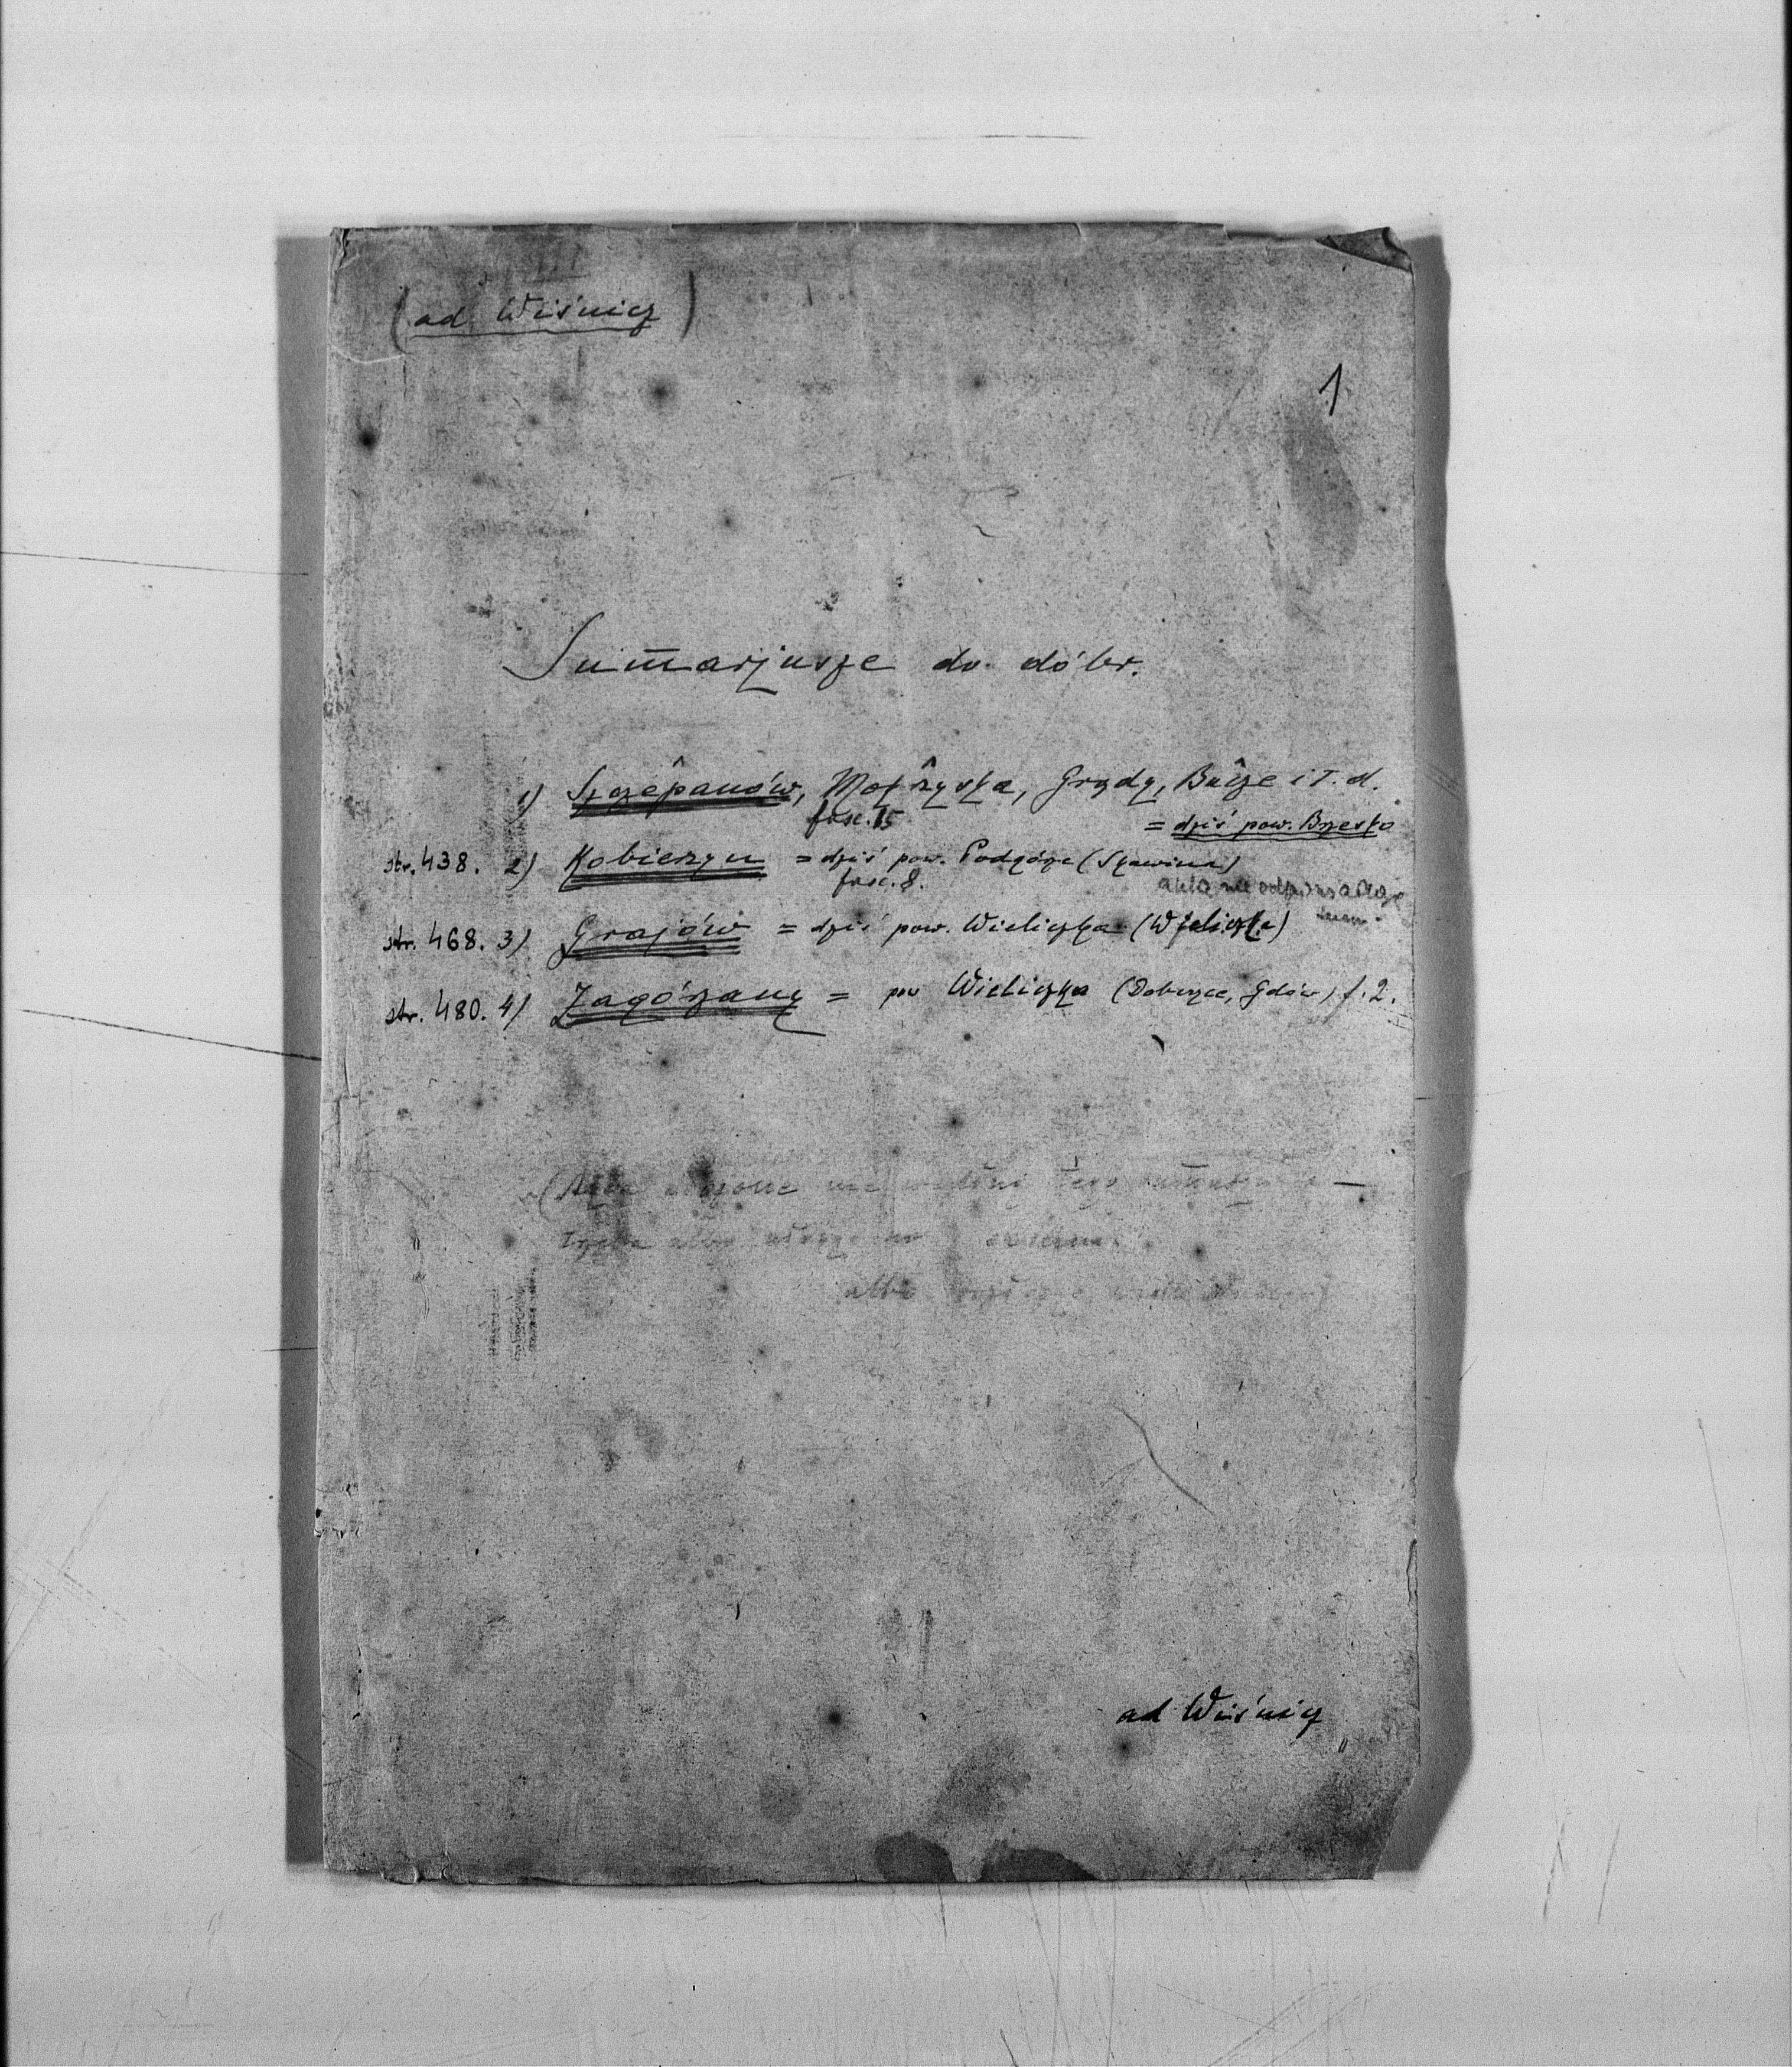 (ad Wiśnicz)
1
Sum̄arjusze do dóbr.
1) Szczepanów, Mokrzyska, Grądy, Bucze i t. d.
fasc. 15
= dziś pow. Brzesko
str. 438. 2) Kobierzyn = dziś pow. Podgórze (Skawina)
fasc. 8.
akta nie odpowiadają
str. 468. 3) Grajów = dziś pow. Wieliczka (Wieliczka)
str. 480. 4) Zagórzany = pow Wieliczka (Dobczyce, Gdów) f. 2.
tego
albo
ad Wiśnicz